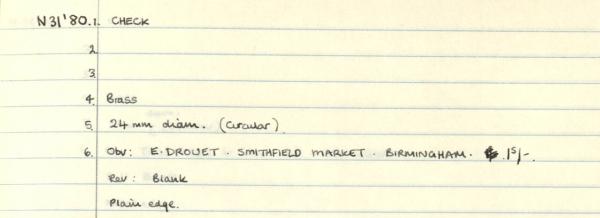 N31'80.1. CHECK
2.
3.
4. Brass
5. 24 mm diam. (Circular)
6. Obv: E. DROUET · SMITHFIELD MARKET · BIRMINGHAM · 1s/-.
Rev: Blank
Plain edge.